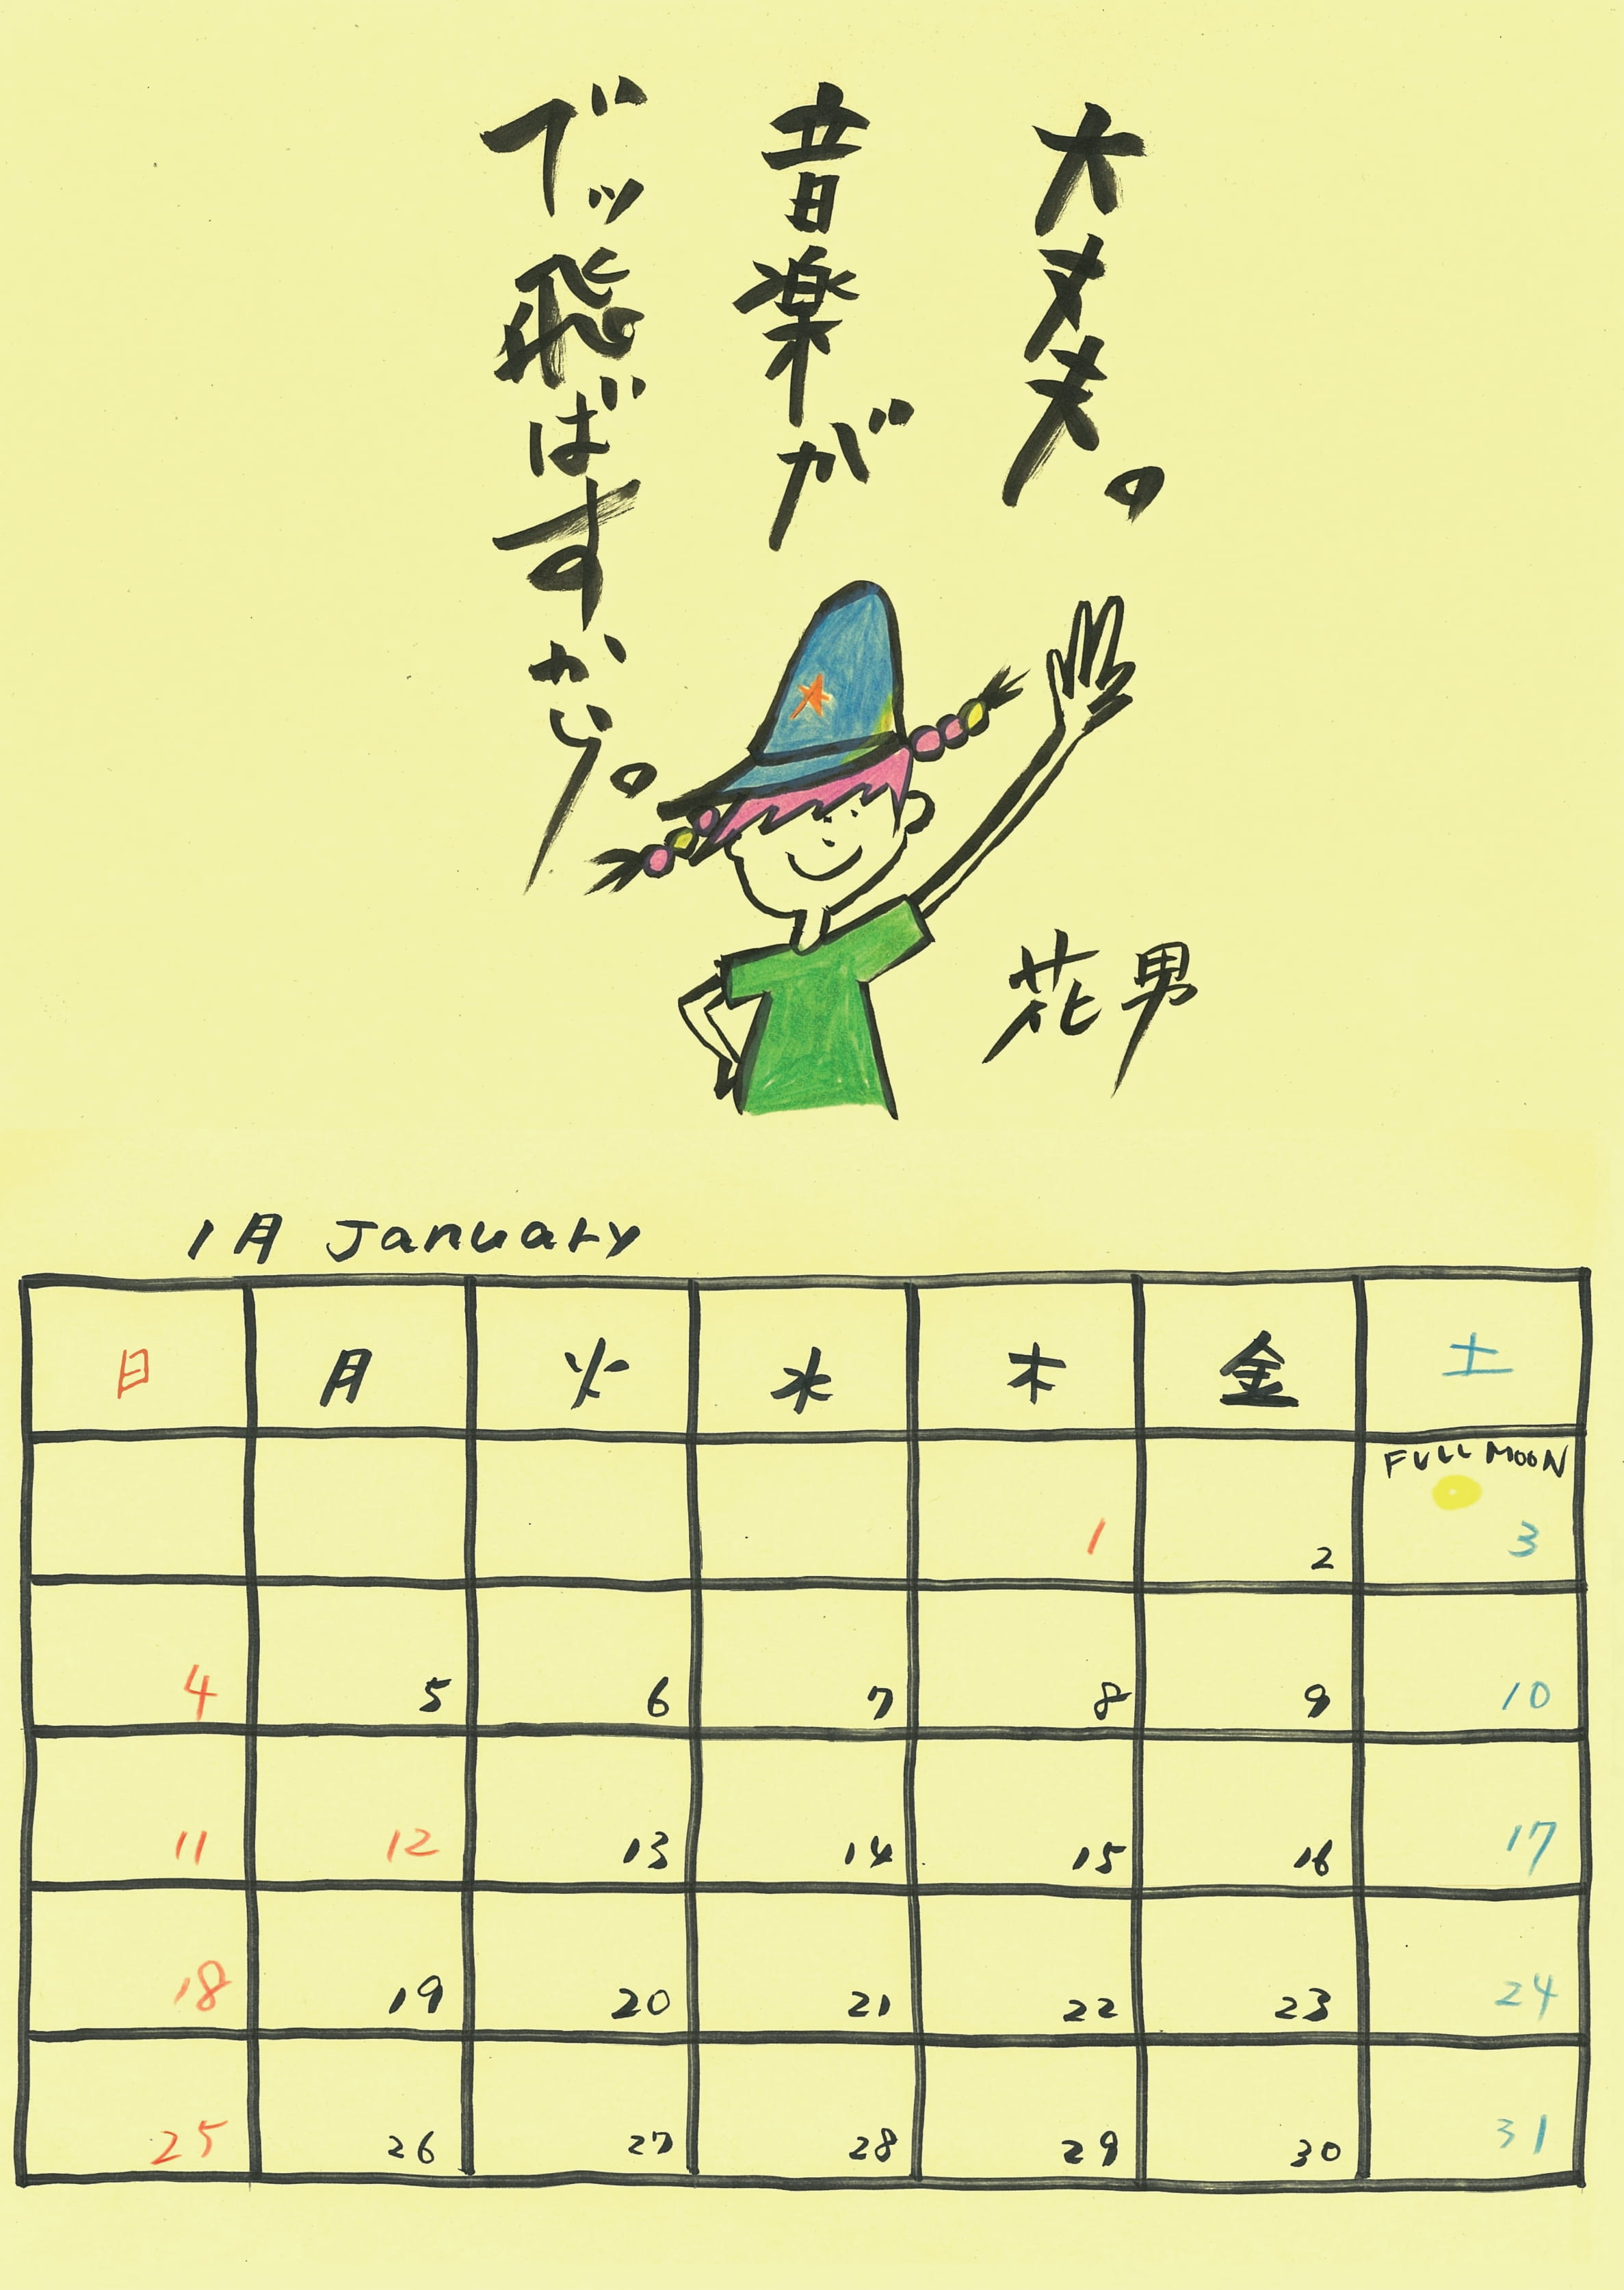 大丈夫。
音楽が
ブッ飛ばすから。
花男
1月 January
日 月 火 水 木 金 土
FULL MOON
1 2 3
4 5 6 7 8 9 10
11 12 13 14 15 16 17
18 19 20 21 22 23 24
25 26 27 28 29 30 31